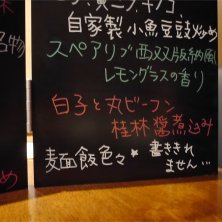 自家製小魚豆豉炒め
スペアリブ西双版納風
レモングラスの香り
白子と丸ビーフン
桂林醤煮込み
麺飯色々*書ききれ
ません...
名物
め